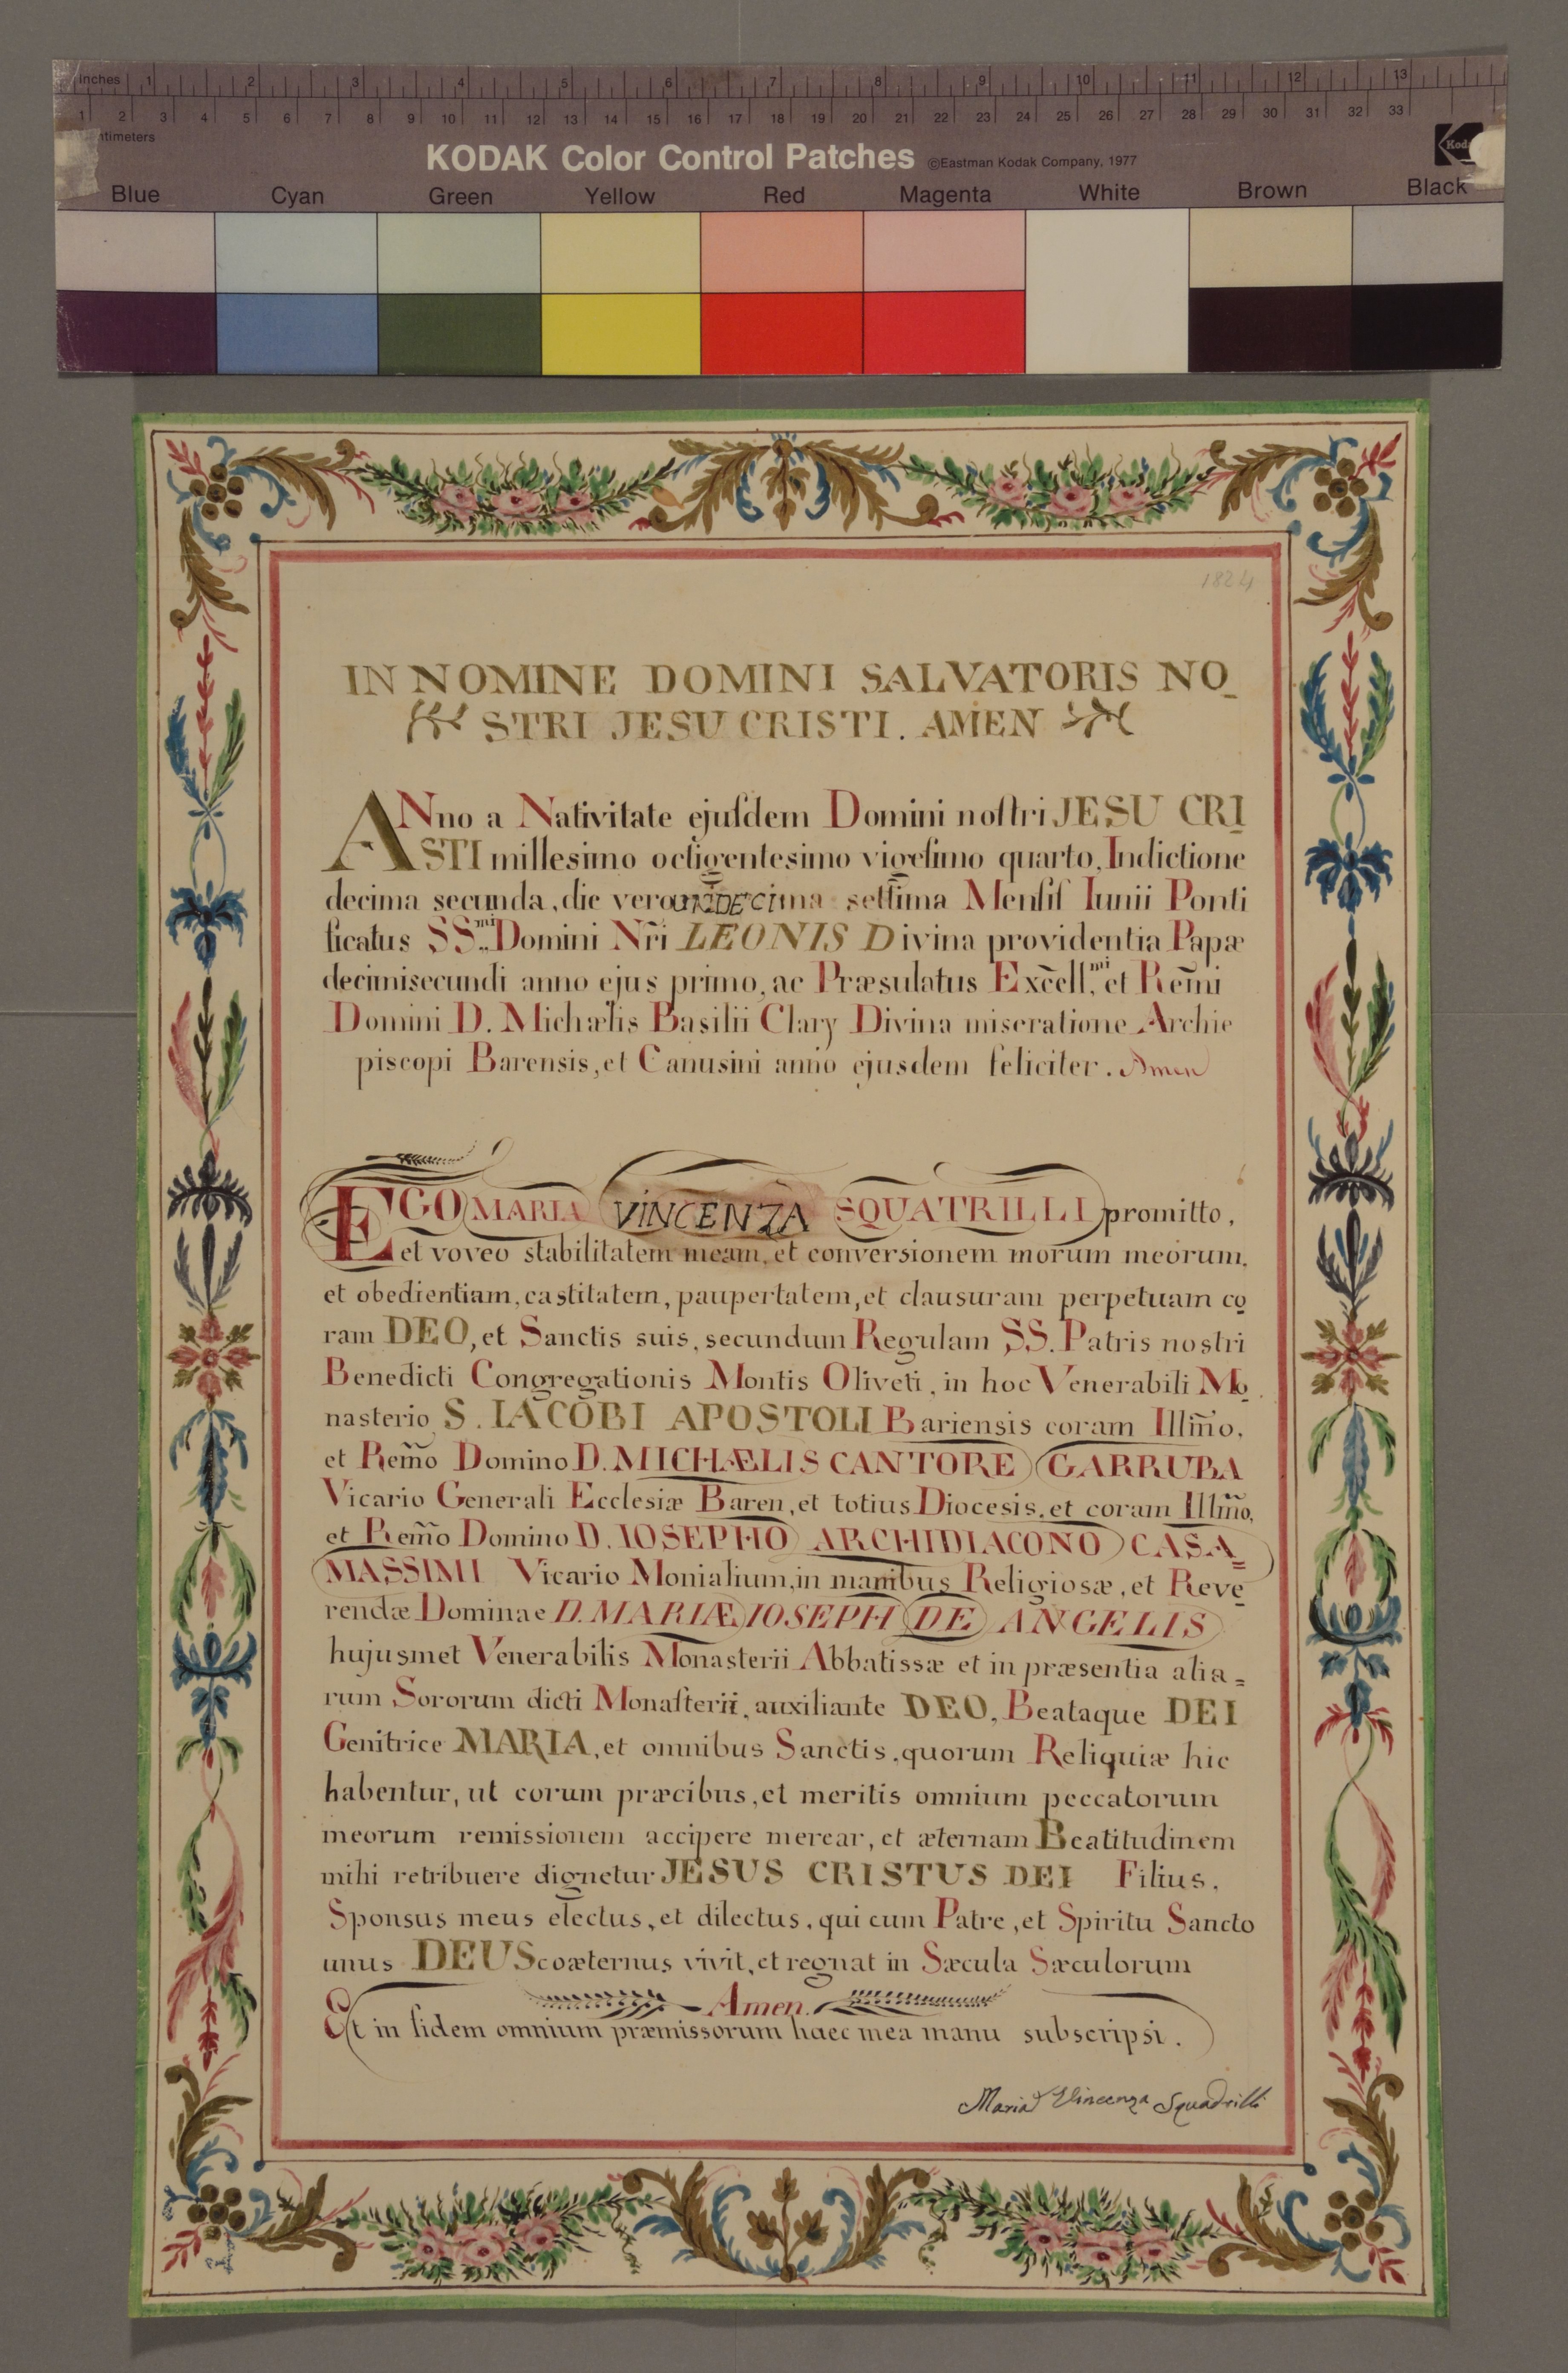 Inches 1 2 3 4 5 6 7 8 9 10 11 12 13
1 2 3 4 5 6 7 8 9 10 11 12 13 14 15 16 17 18 19 20 21 22 23 24 25 26 27 28 29 30 31 32 33
ntimeters
KODAK Color Control Patches ©Eastman Kodak Company, 1977
Blue Cyan Green Yellow Red Magenta White Brown Black
1824
IN NOMINE DOMINI SALVATORIS NO_
STRI JESU CRISTI. AMEN
ANno a Nativitate ejuſdem Domini noſtri JESU CRI
STI millesimo octigentesimo vigeſimo quarto, Indictione
decima secunda, die vero UNDECima settima Menſiſ Iunii Ponti
ficatus SS.mi Domini Nr̃i LEONIS Divina providentia Papæ
decimisecundi anno ejus primo, ac Præsulatus Excell,mi et Rem̃i
Domini D. Michælis Basilii Clary Divina miseratione Archie
piscopi Barensis, et Canusini anno ejusdem feliciter. Amen
EGO MARIA VINCENZA SQUATRILLI promitto,
et voveo stabilitatem meam, et conversionem morum meorum,
et obedientiam, castitatem, paupertatem, et clausuram perpetuam co
ram DEO, et Sanctis suis, secundum Regulam SS. Patris nostri
Benedicti Congregationis Montis Oliveti, in hoc Venerabili Mo
nasterio S. IACOBI APOSTOLI Bariensis coram Illm̃o,
et Rem̃o Domino D. MICHÆLIS CANTORE GARRUBA
Vicario Generali Ecclesiæ Baren, et totius Diocesis, et coram Illm̃o,
et Rem̃o Domino D. IOSEPHO ARCHIDIACONO CASA=
MASSIMI Vicario Monialium, in manibus Religiosæ, et Reve
rendæ Dominae D. MARIÆ IOSEPH DE ANGELIS
hujusmet Venerabilis Monasterii Abbatissæ et in præsentia alia=
rum Sororum dicti Monaſterii, auxiliante DEO, Beataque DEI
Genitrice MARIA, et omnibus Sanctis, quorum Reliquiæ hic
habentur, ut eorum præcibus, et meritis omnium peccatorum
meorum remissionem accipere merear, et æternam Beatitudinem
mihi retribuere dignetur JESUS CRISTUS DEI Filius,
Sponsus meus electus, et dilectus, qui cum Patre, et Spiritu Sancto
unus DEUS coæternus vivit, et regnat in Sæcula Sæculorum
Amen.
Et in fidem omnium præmissorum haec mea manu subscripsi.
Maria Vincenza Squadrilli